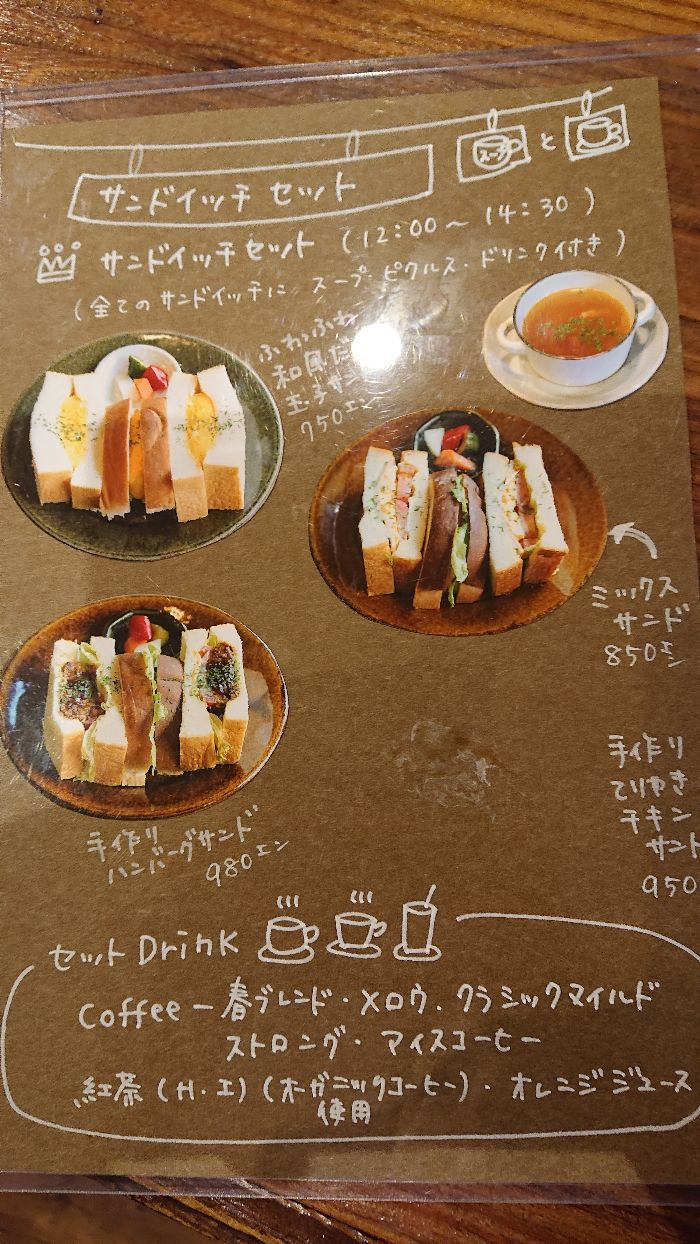 スープ と
サンドイッチ セット
サンドイッチセット (12:00～14:30)
(全てのサンドイッチに スープ・ピクルス・ドリンク付き)
ふわふわ
和風だ
玉子サン
750エン
ミックス
サンド
850エン
手作り
ハンバーグサンド
980エン
手作り
てりやき
チキン
サンド
950
セット Drink
Coffee ー春ブレンド・メロウ.クラシックマイルド
ストロング・アイスコーヒー
紅茶(H・I)(オーガニックコーヒー)・オレンジジュース
使用